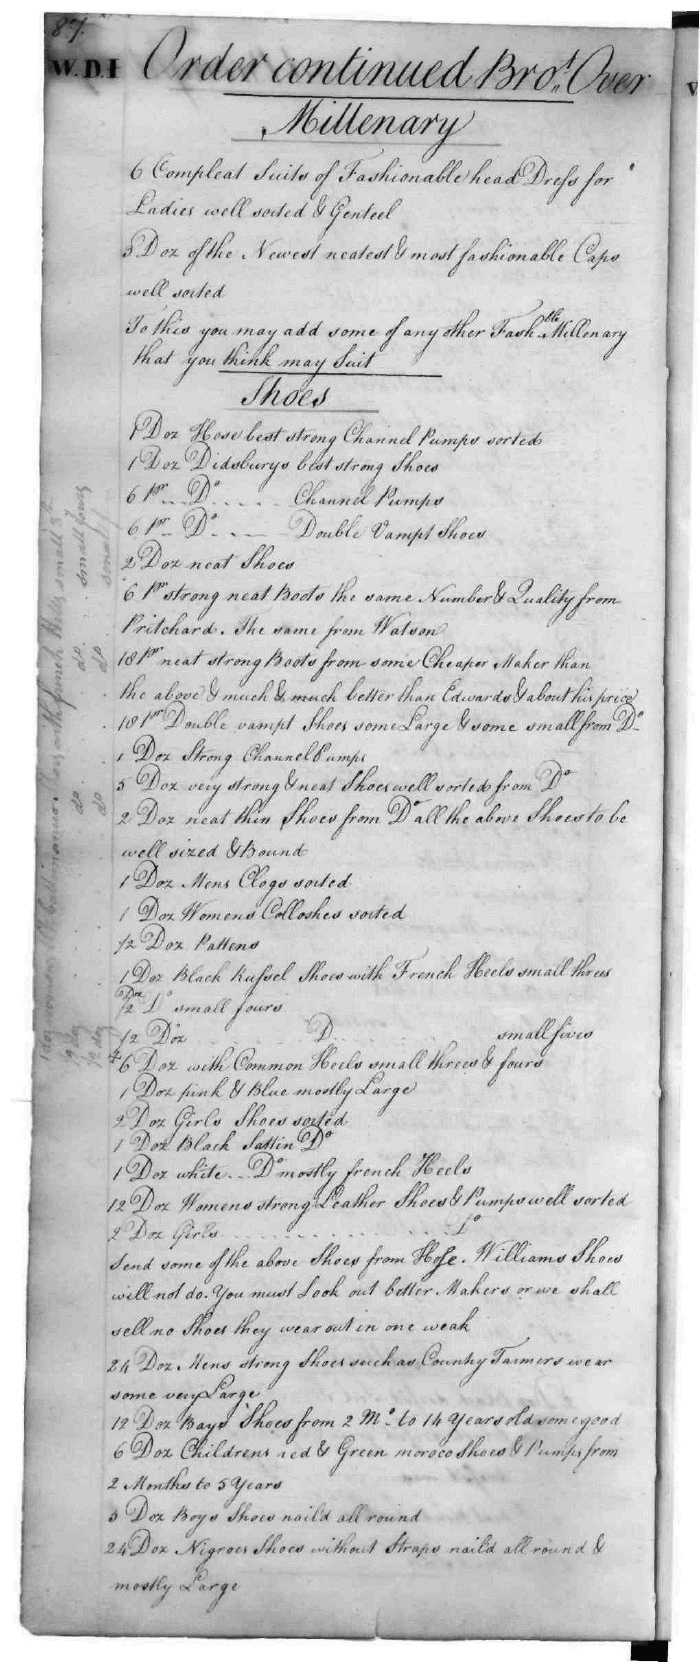 87.
W.D.I Order continued Bro.t Over
Millenary
6 Compleat Suits of Fashionable head Dress for
Ladies well sorted & Genteel
5 Doz of the Newest neatest & most fashionable Caps
well sorted
To this you may add some of any other Fash.ble Millenary
that you think may Suit
Shoes
1 Doz Hose best strong Channel Pumps sorted
1 Doz Didsburys best strong Shoes
6 Pr Do Channel Pumps
6 Pr Do Double Vampt Shoes
2 Doz neat Shoes
6 Pr strong neat Boots the same Number & Quality from
Pritchard. The same from Watson
18 Pr neat strong Boots from some Cheaper Maker than
the above & much & much better than Edwards & about his price
18 Pr Double vampt Shoes some Large & some small from Do
1 Doz Strong Channel Pumps
5 Doz very strong & neat Shoes well sorted from Do
2 Doz neat thin Shoes from Do all the above Shoes to be
well sized & Bound
1 Doz Mens Clogs sorted
1 Doz Womens Colloshes sorted
1/2 Doz Pattens
1 Doz Black Russel Shoes with French Heels small threes
1/2 Doz Do small fours
1/2 Doz D small fives
6 Doz with Common Heels small threes & fours
1 Doz pink & Blue mostly Large
2 Doz Girls Shoes sorted
1 Doz Black Sattin Do
1 Doz white Do mostly french Heels
12 Doz Womens strong Leather Shoes & Pumps well sorted
2 Doz Girls Do
Send some of the above Shoes from Hose. Williams Shoes
will not do. You must Look out better Makers or we shall
sell no Shoes they wear out in one weak
24 Doz Mens strong Shoes such as Country Farmers wear
some very Large
12 Doz Bays Shoes from 2 Mo. to 14 Years old some good
6 Doz Childrens red & Green moroco Shoes & Pumps from
2 Months to 5 Years
3 Doz Boys Shoes naild all round
24 Doz Nigroes Shoes without Straps naild all round &
mostly Large
french Heels small 3s
do small fours
do small